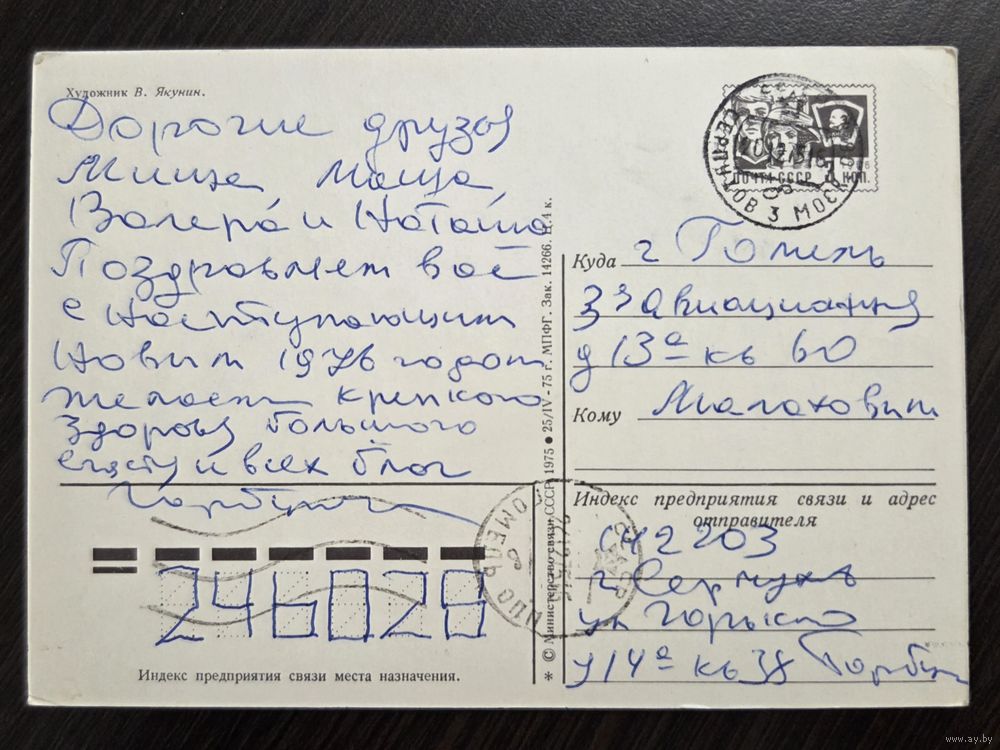 Художник В. Якунин.
Дорогие друзья
Миша Маша,
Валера и Наташа
Поздравляем вас
с наступающим
Новым 1976 годом
желаем крепкого
здоровья большого
счастья и всех благ
ПОЧТА СССР 4 КОП.
СЕРПУХОВ 3 МОСК. ОБЛ.
Куда г Гомель
3 Авиационная
д 13а кв 60
Кому Малахович
Индекс предприятия связи и адрес
отправителя
142203
г Серпухов
ул Горького
д 14а кв 38
ГОМЕЛЬ
246028
Индекс предприятия связи места назначения.
* © Министерство связи СССР, 1975 ● 25/IV - 75 г. МПФГ. Зак. 14266. Ц. 4 к.
www.ay.by